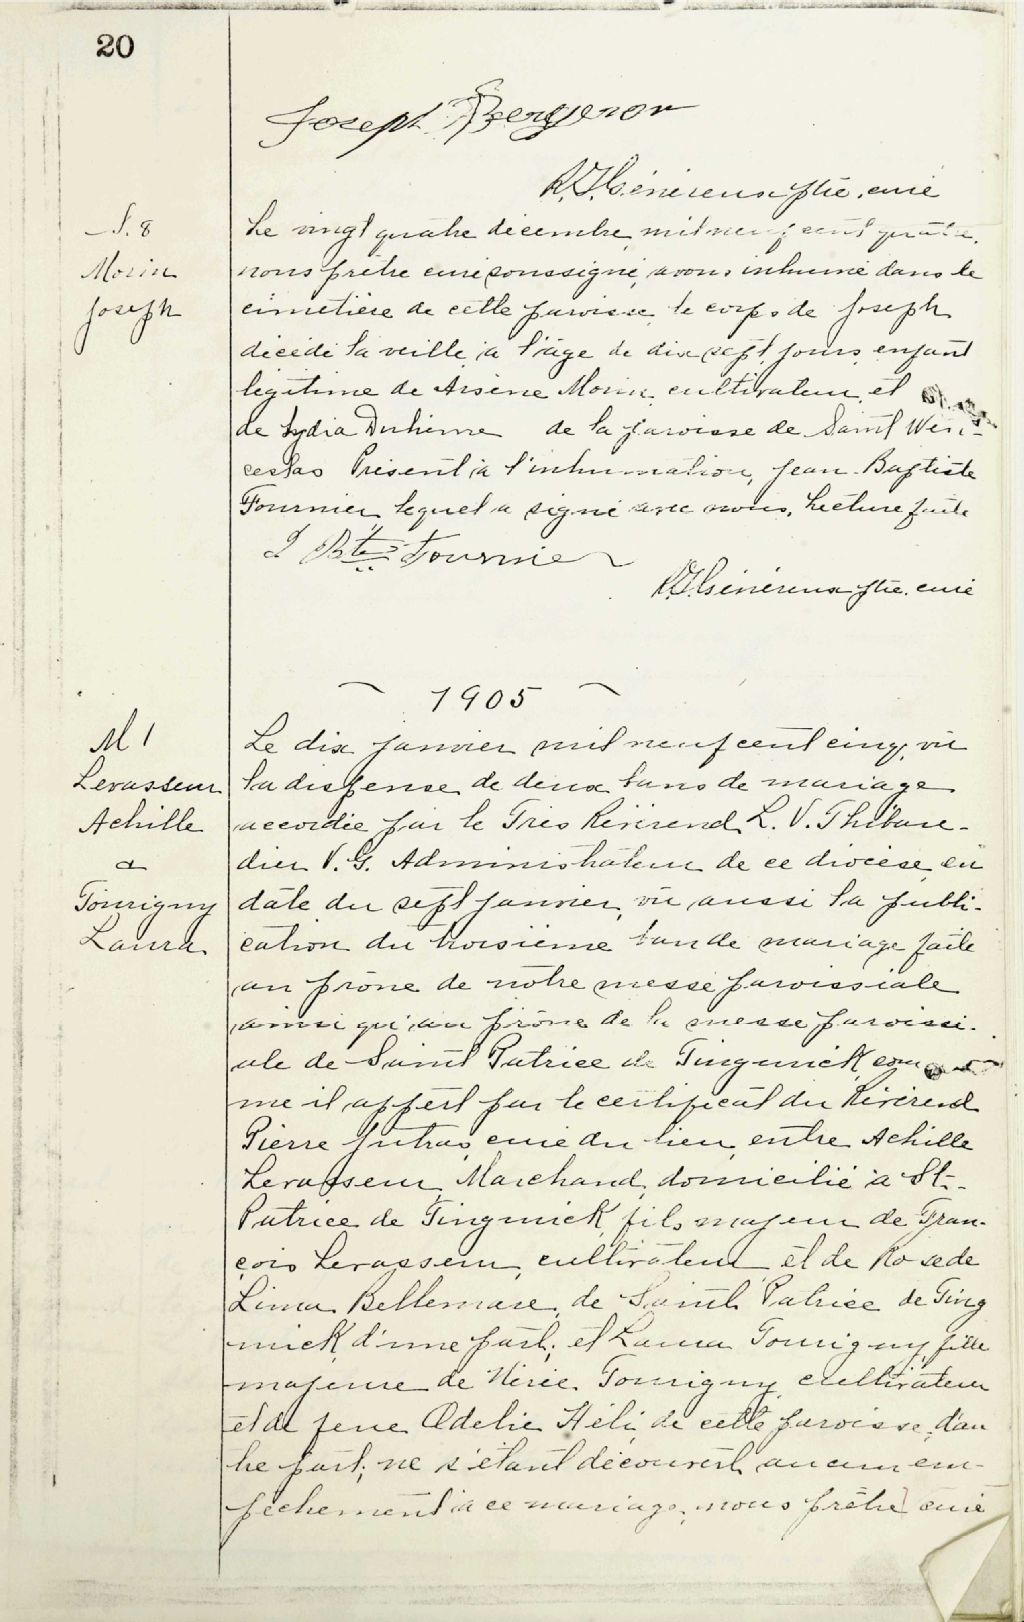 20
Joseph Bergeron
R.J. Généreux ptre. curé
S. 8
Morin
Joseph
Le vingt quatre décembre, mil neuf cent quatre,
nous prêtre curé soussigné, avons inhumé dans le
cimetière de cette paroisse, le corps de Joseph
décédé la veille, à l'âge de dix sept jours, enfant
légitime de Arsène Morin, cultivateur, et
de Lydia Duhême de la paroisse de Saint Wen-
ceslas Présent à l'inhumation, Jean-Baptiste
Fournier, lequel a signé avec nous. Lecture faite
J Bte Fournier
R.J. Généreux ptre. curé
1905
M 1
Levasseur
Achille
&
Tourigny
Laura
Le dix janvier mil neuf cent cinq, vu
la dispense de deux bans de mariage
accordée par le Très Révérend L. V. Thibau-
dier V. G. Administrateur de ce diocèse, en
date du sept janvier, vu aussi la publi-
cation du troisième ban de mariage faite
au prône de notre messe paroissiale
ainsi qu'au prône de la messe paroissi-
ale de Saint Patrice de Tingwick, com-
me il appert par le certificat du Révérend
Pierre Jutras, curé du lieu, entre Achille
Levasseur, Marchand, domicilié à St-
Patrice de Tingwick, fils majeur de Fran-
çois Levasseur, cultivateur, et de Rose de
Lima Bellemare, de Saint Patrice de Ting
wick, d'une part; et Laura Tourigny, fille
majeure de Nérée Tourigny cultivateur
et de feue Odélie Héli, de cette paroisse, d'au
tre part; ne s'étant découvert aucun em-
pêchement à ce mariage; nous prêtre curé